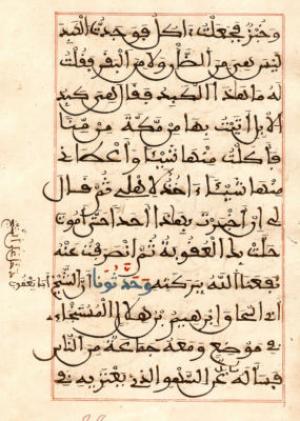 وخبز فجعلت ءاكل فوجدت الكبد
ليس هي من الظان ولا من البقر فقلت
له ما هذا الكبد فقال هي كبد
الابل اتيت بها من مكة من منا
فاكلت منها شيئا واعطاني
منها شيئا لاهلي ثم قال
لي ان اخبرت بهذا احدا حتى اموت
حلت بك العقوبة ثم انصرفت عنه
نفعنا الله ببركته وحدثونا ان الشيخ ابا يعقوب
وابرهيم بن هلال
في موضع ومعه جماعة من الناس
فسأله عن السهو الذي يعتريه في